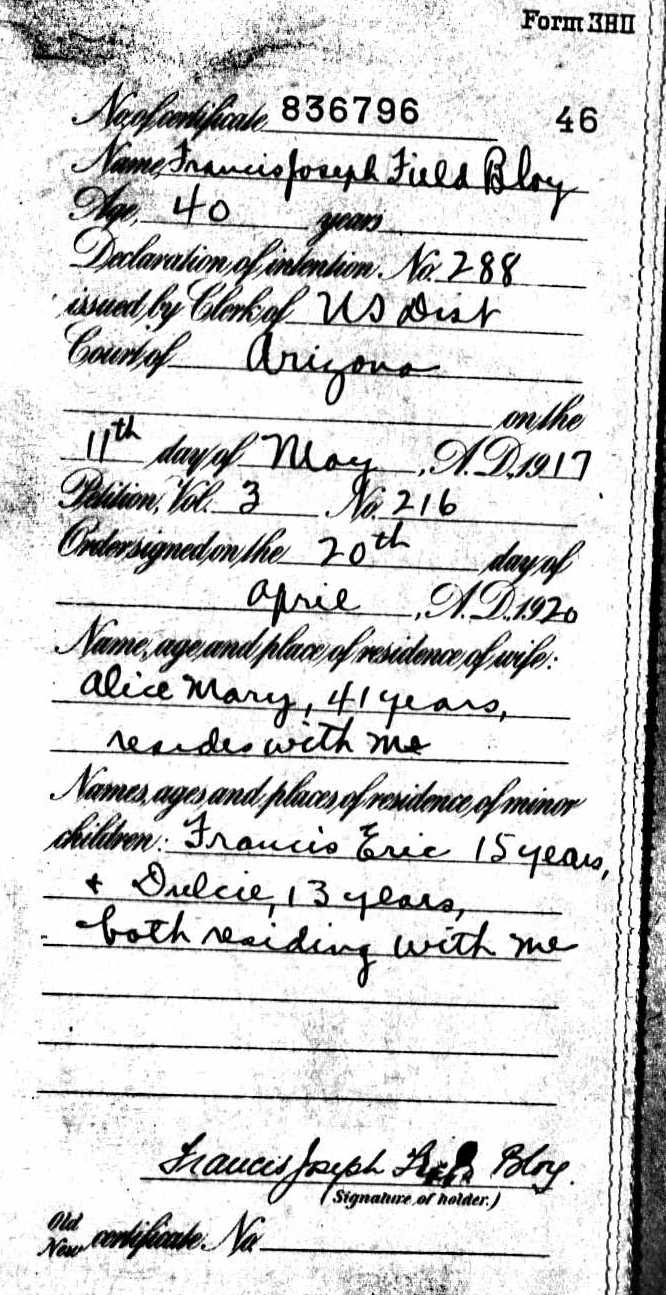 No. of certificate 836796 46
Name, Francis Joseph Field Bloy
Age, 40 years
Declaration of intention No. 288
issued by Clerk of US Dist
Court of Arizona
on the
11th day of May, A.D. 1917
Petition, Vol. 3 No. 216
Order signed on the 20th day of
April, A.D. 1920
Name, age and place of residence of wife:
Alice Mary, 41 years,
resides with me
Names, ages and places of residence of minor
children: Francis Eric 15 years,
+ Dulcie, 13 years,
both residing with me
Francis Joseph Bloy.
(Signature of holder.)
Old
New certificate No.